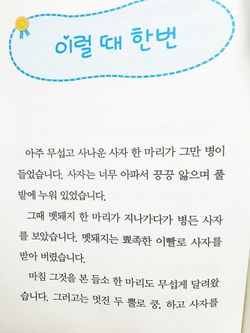 이럴 때 한번
아주 무섭고 사나운 사자 한 마리가 그만 병이
들었습니다. 사자는 너무 아파서 끙끙 앓으며 풀
밭에 누워 있었습니다.
그때 멧돼지 한 마리가 지나가다가 병든 사자
를 보았습니다. 멧돼지는 뾰족한 이빨로 사자를
받아 버렸습니다.
마침 그것을 본 들소 한 마리도 무섭게 달려왔
습니다. 그러고는 멋진 두 뿔로 쿵, 하고 사자를